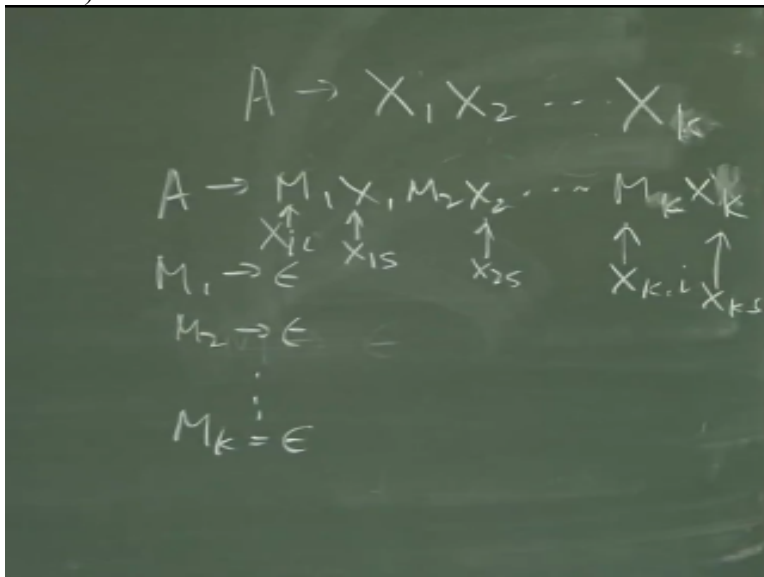 A → X₁ X₂ ... Xₖ
A → M₁ X₁ M₂ X₂ ... Mₖ Xₖ
↑ ↑ ↑ ↑ ↑
X₁ᵢ X₁ₛ X₂ₛ Xₖ.ᵢ Xₖₛ
M₁ → ε
M₂ → ε
⋮
Mₖ = ε